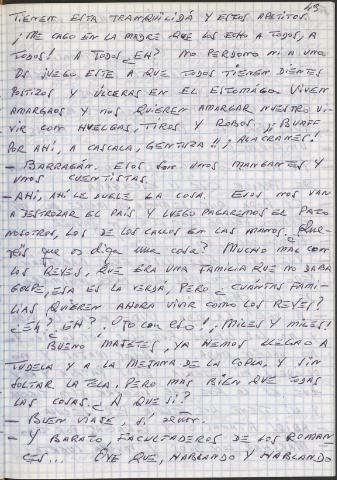 49
TIENEN ESTA TRANQUILIDÁ Y ESTOS APETITOS.
¡ME CAGO EN LA MADRE QUE LOS ECHO A TODOS, A
TODOS! A TODOS ¿EH? NO PERDONO NI A UNO
OS JUEGO ESTE A QUE TODOS TIENEN DIENTES
POSTIZOS Y ÚLCERAS EN EL ESTOMÁGO. VIVEN
AMARGAOS Y NOS QUIEREN AMARGAR NUESTRO VI-
VIR CON HUELGAS, TIROS Y ROBOS. ¡¡BUAFF
POR AHÍ, A CASCALA, GENTUZA!!, ¡ALACRANES!
- BARRAGÁN. ESOS SON UNOS MANGANTES Y
UNOS CUENTISTAS.
- AHÍ, AHÍ LE DUELE LA COSA. ESOS NOS VAN
A DESTROZAR EL PAÍS Y LUEGO PAGAREMOS EL PATO
NOSOTROS, LOS DE LOS CALLOS EN LAS MANOS. ¿Que-
réis que os diga una cosa? MUCHO MAL CON
LOS REYES, QUE ERA UNA FAMILIA QUE NO DABA
GOLPE, ESA ES LA VERDA, PERO ¿CUÁNTAS FAMI-
LIAS QUIEREN AHORA VIVIR COMO LOS REYES?
¿EH?, EH?. OJO CON ESO! ¡MILES Y MILES!
BUENO MAJETES, YA HEMOS LLEGAO A
TUDELA Y A LA MEJANA DE LA COPLA, Y SIN
SOLTAR LA TELA, PERO MAS BIEN QUE TODAS
LAS COSAS. ¿A QUE SI?
- BUEN VIAJE, SÍ SEÑOR.
- Y BARATO, FACULTADEROS DE LOS ROMAN-
CES... OYE QUE, HABLANDO Y HABLANDO